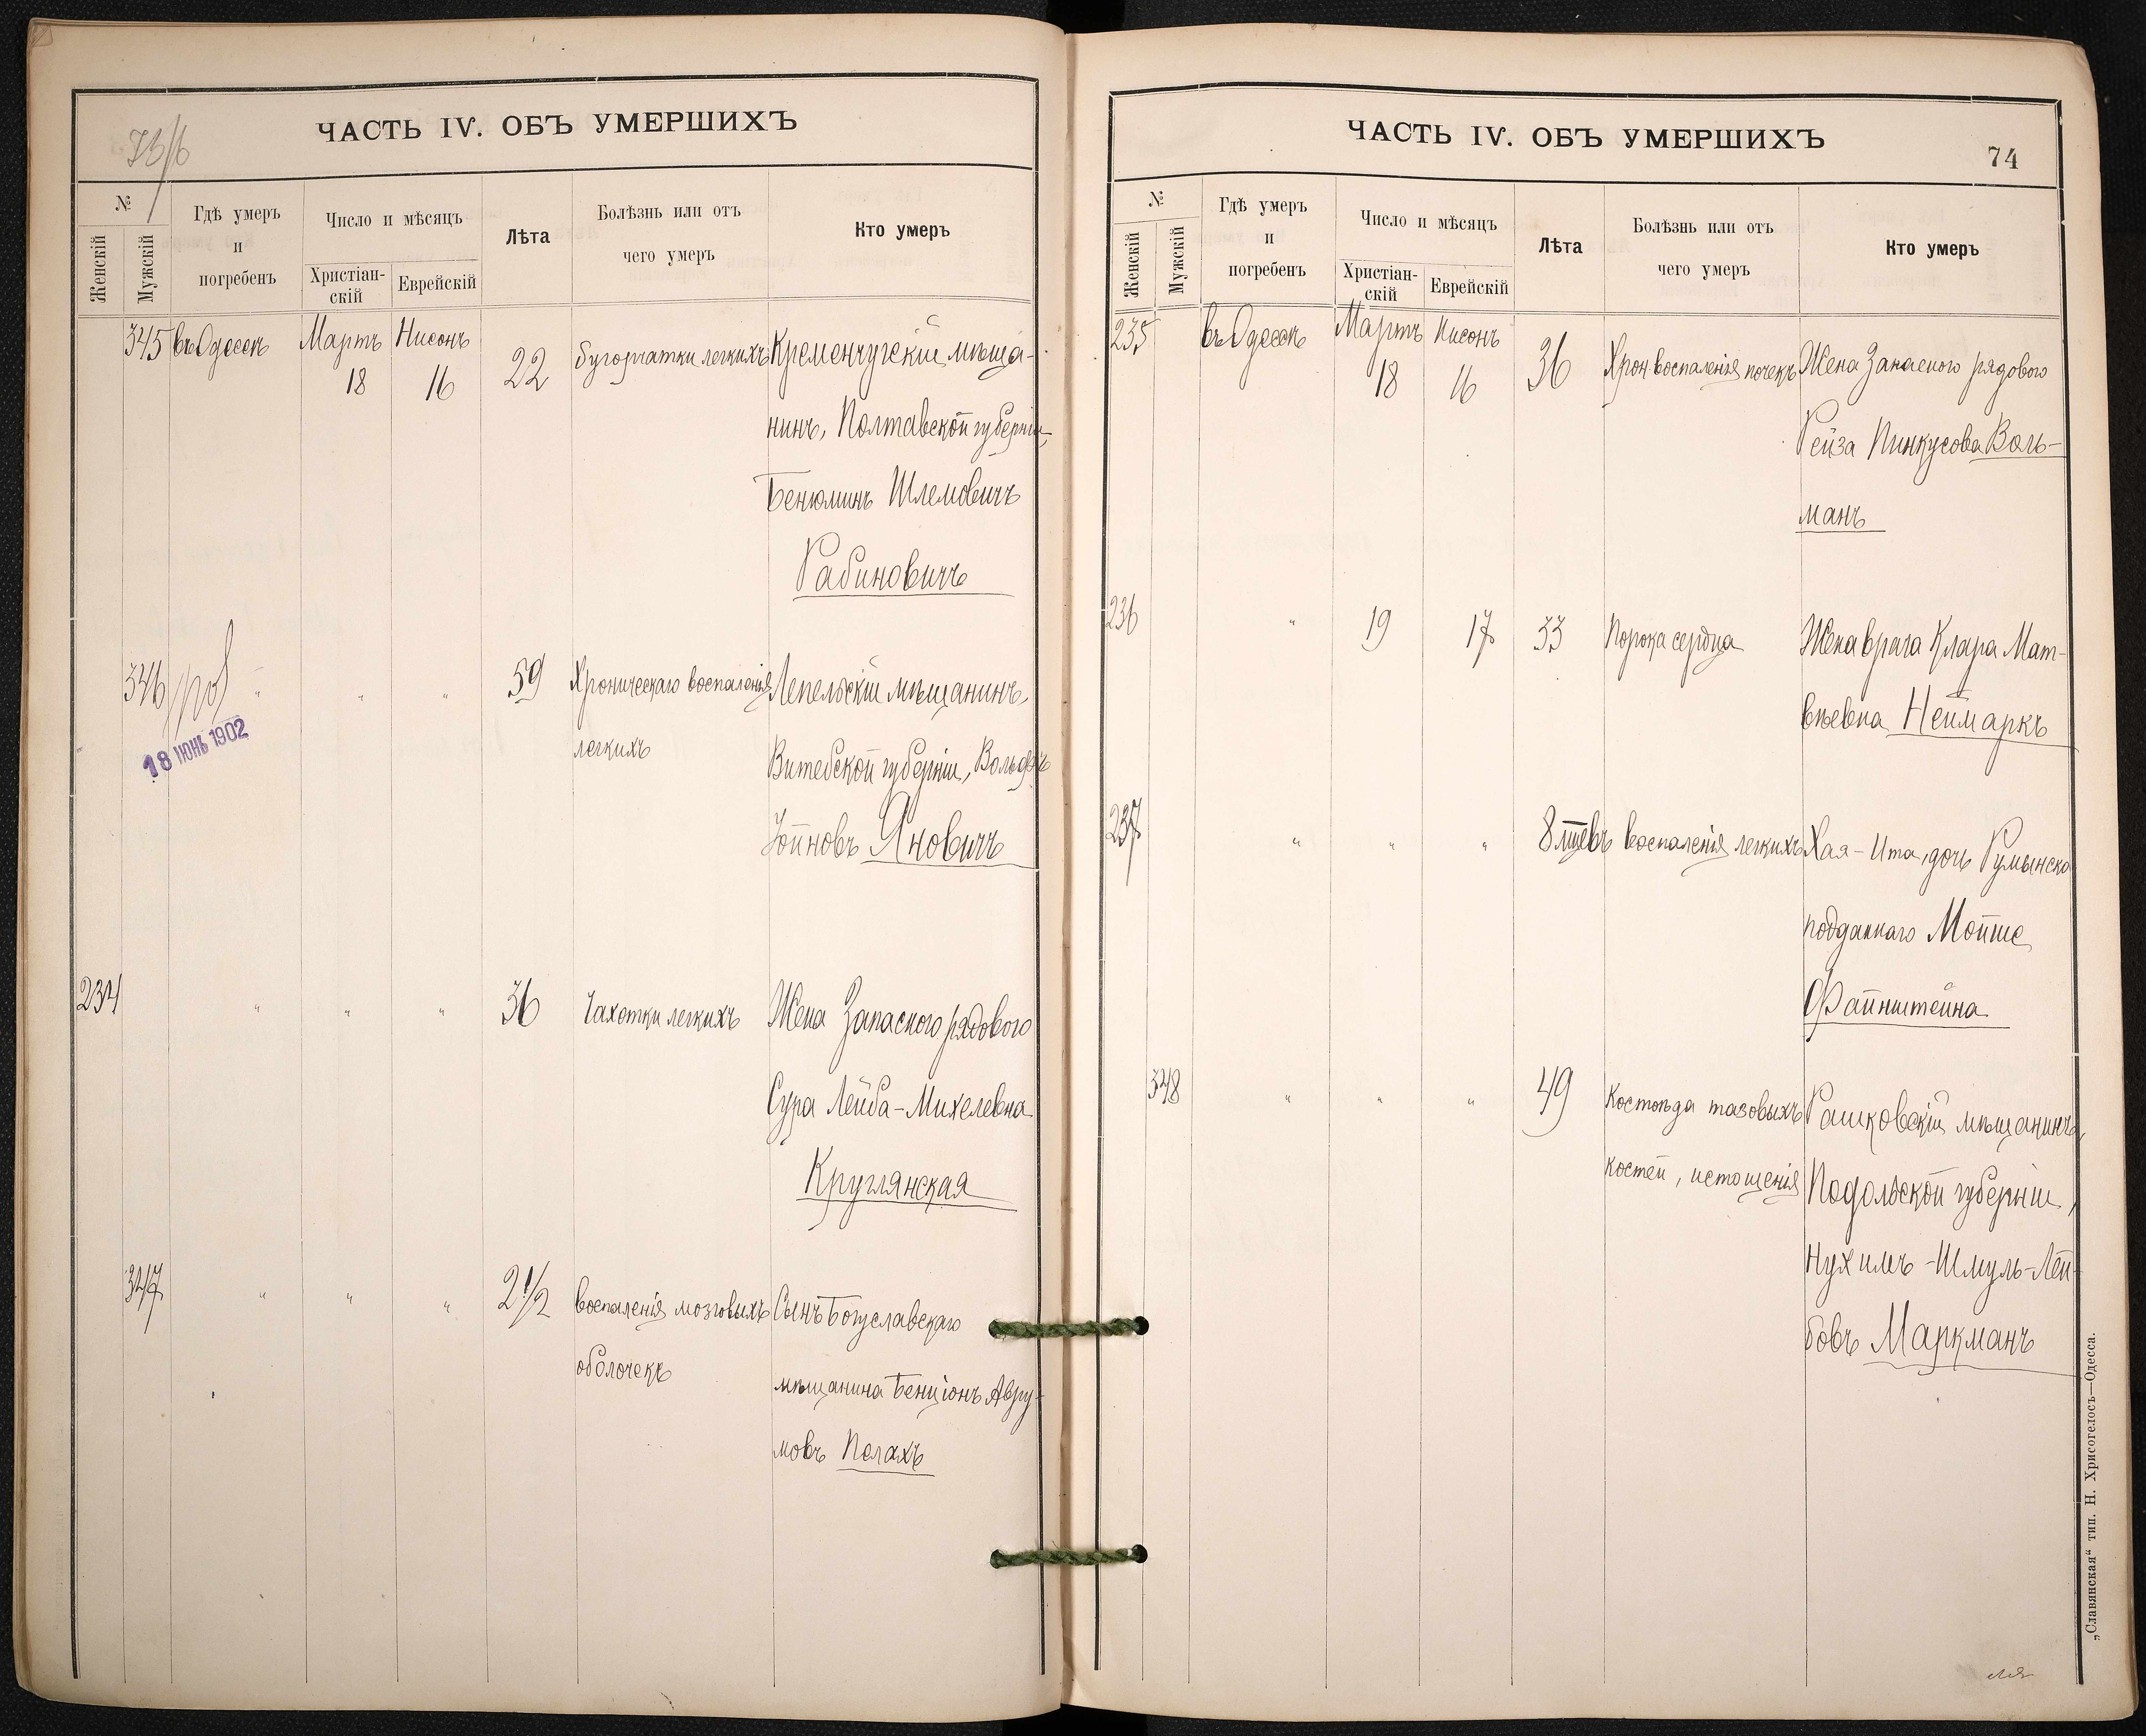 ЧАСТЬ IV. ОБЪ УМЕРШИХЪ
№
Женскій
Мужскій
Гдѣ умеръ
и
погребенъ
Число и мѣсяцъ
Христіан-
скій
Еврейскій
Лѣта
Болѣзнь или отъ
чего умеръ
Кто умеръ
345 въ Одессѣ Мартъ Нисонъ
18 16 22 бугорчатки легкихъ Кременчугскій мѣща-
нинъ, Полтавской губерніи,
Бенюминъ Шлемовичъ
Рабиновичъ
346 " " " 59 Хроническаго воспаленія Лепельскій мѣщанинъ,
18 ІЮНЬ 1902
легкихъ Витебской губерніи, Вольфъ
Яновичъ
234 " " " 36 Чахотки легкихъ Жена Запасного рядового
Сура Лейба-Михелевна
Круглянская
347 " " " 2 1/2 воспаленія мозговыхъ Сынъ Богуславскаго
оболочекъ мѣщанина Бенціонъ Авру-
мовъ Пелахъ
ЧАСТЬ IV. ОБЪ УМЕРШИХЪ
74
№
Женскій
Мужскій
Гдѣ умеръ
и
погребенъ
Число и мѣсяцъ
Христіан-
скій
Еврейскій
Лѣта
Болѣзнь или отъ
чего умеръ
Кто умеръ
235 въ Одессѣ Мартъ Нисонъ
18 16 36 Хрон. воспаленія почекъ Жена Запасного рядового
Рейза Пинкусова Воль-
манъ
236 " 19 17 33 Порока сердца Жена врача Клара Мат-
вѣевна Неймаркъ
237 " " " 8 мцевъ воспаленія легкихъ Хая-Ита, дочь Румынско
подданнаго Мойше
Файнштейна
348 " " " 49 Костоѣда тазовыхъ Рашковскій мѣщанинъ,
костей, истощенія Подольской губерніи,
Нухимъ-Шмуль-Лей-
бовъ Маркманъ
„Славянская“ тип. Н. Хрисогелосъ—Одесса.